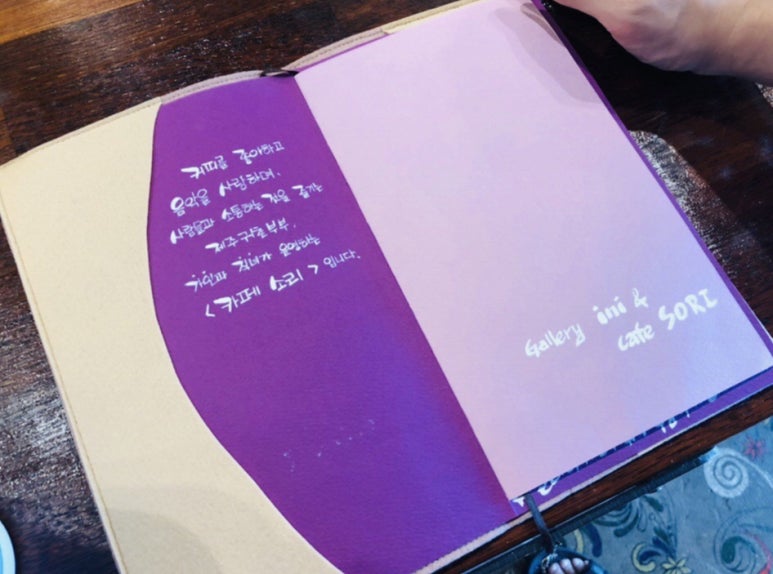 커피를 좋아하고
음악을 사랑하며,
사람들과 소통하는 것을 즐기는
제주 부부,
운영하는
<카페 소리> 입니다.
Gallery ini &
cafe SORI